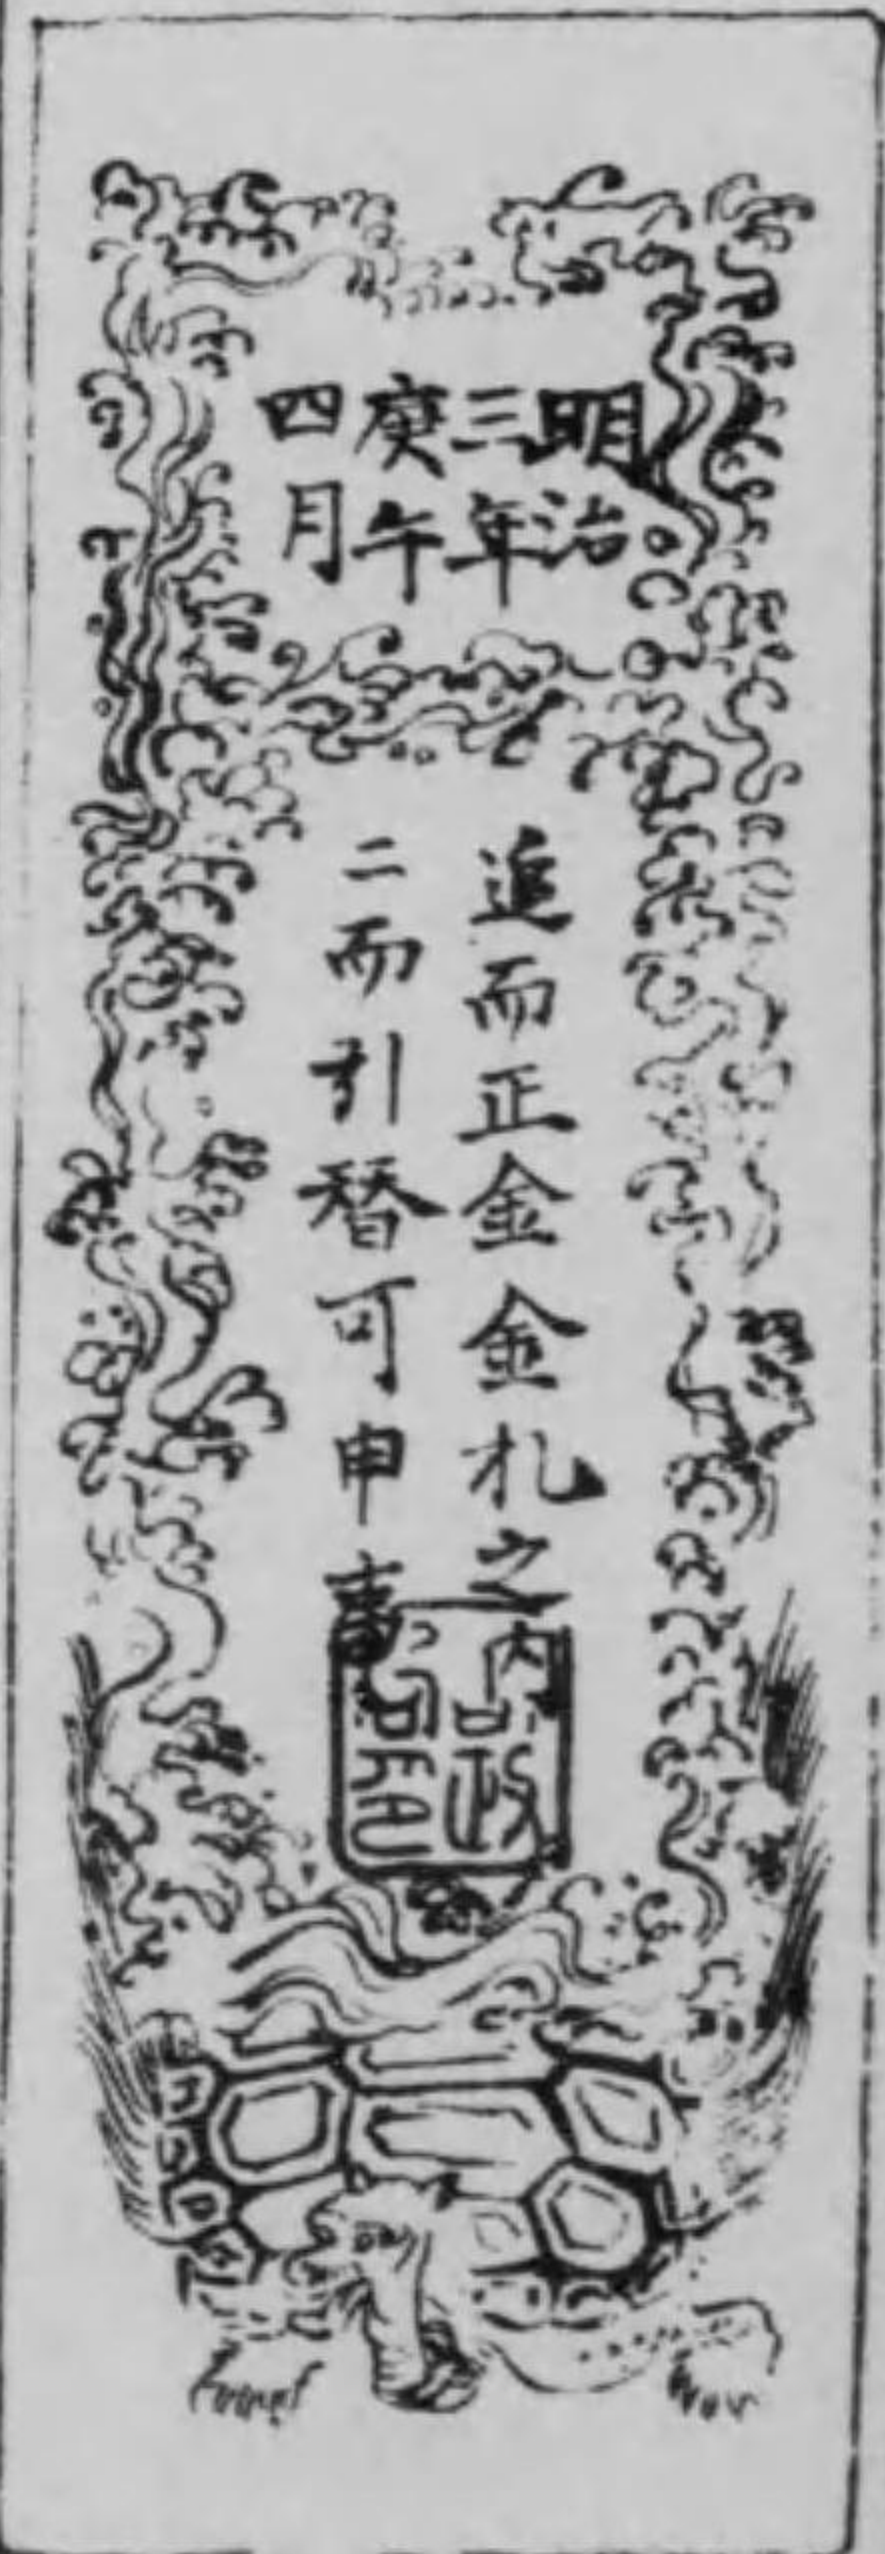 明治
三年
庚午
四月
追而正金金札之
二而引替可申事